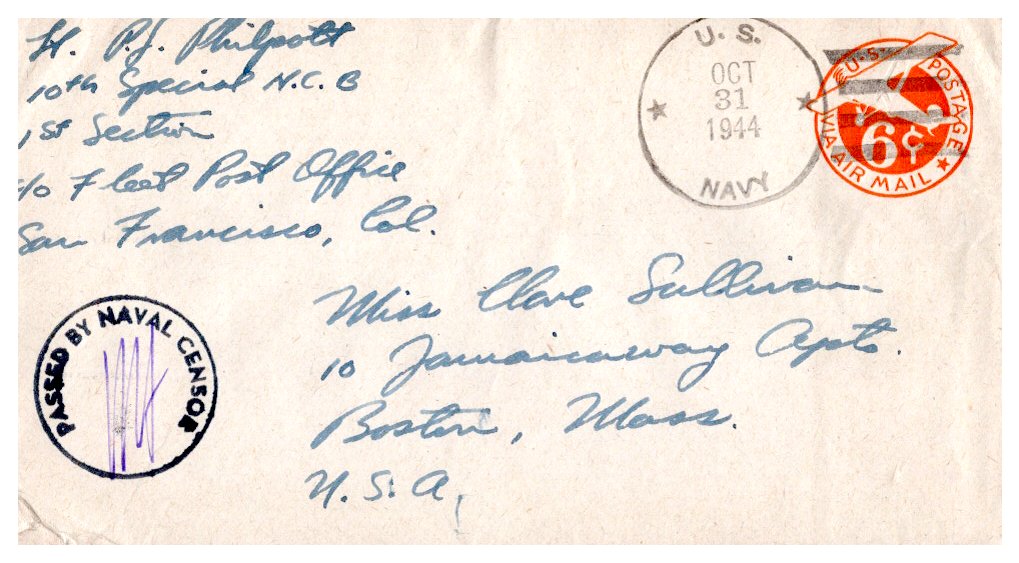 Lt. P.J. Philpott
10th Special N.C.B
1st Section
c/o Fleet Post Office
San Francisco, Cal.
U.S.
OCT
31
1944
NAVY
U.S. POSTAGE
6¢
VIA AIR MAIL
PASSED BY NAVAL CENSOR
Miss Clare Sullivan
10 Jamaicaway Apts.
Boston, Mass.
U.S.A.